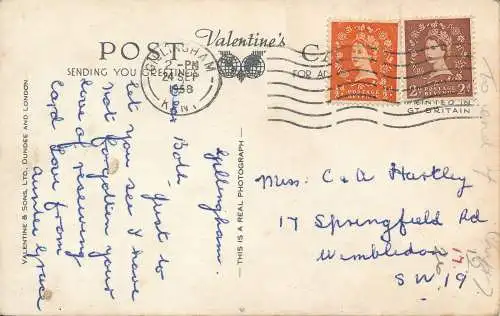 POST CARD
Valentine's
SENDING YOU GREETINGS
FOR AD
GILLINGHAM
2-PM
24 SEP
1958
KENT
POSTAGE REVENUE
2D 2D
PRINTED IN
GT BRITAIN
VALENTINE & SONS, LTD., DUNDEE AND LONDON
THIS IS A REAL PHOTOGRAPH
Gillingham.
Dear Both
Just to
let you see I have
not forgotten your
love of reserving
card love from
Auntie Grace
Miss. C & A Hartley
17 Springfield Rd
Wimbledon
S W 19